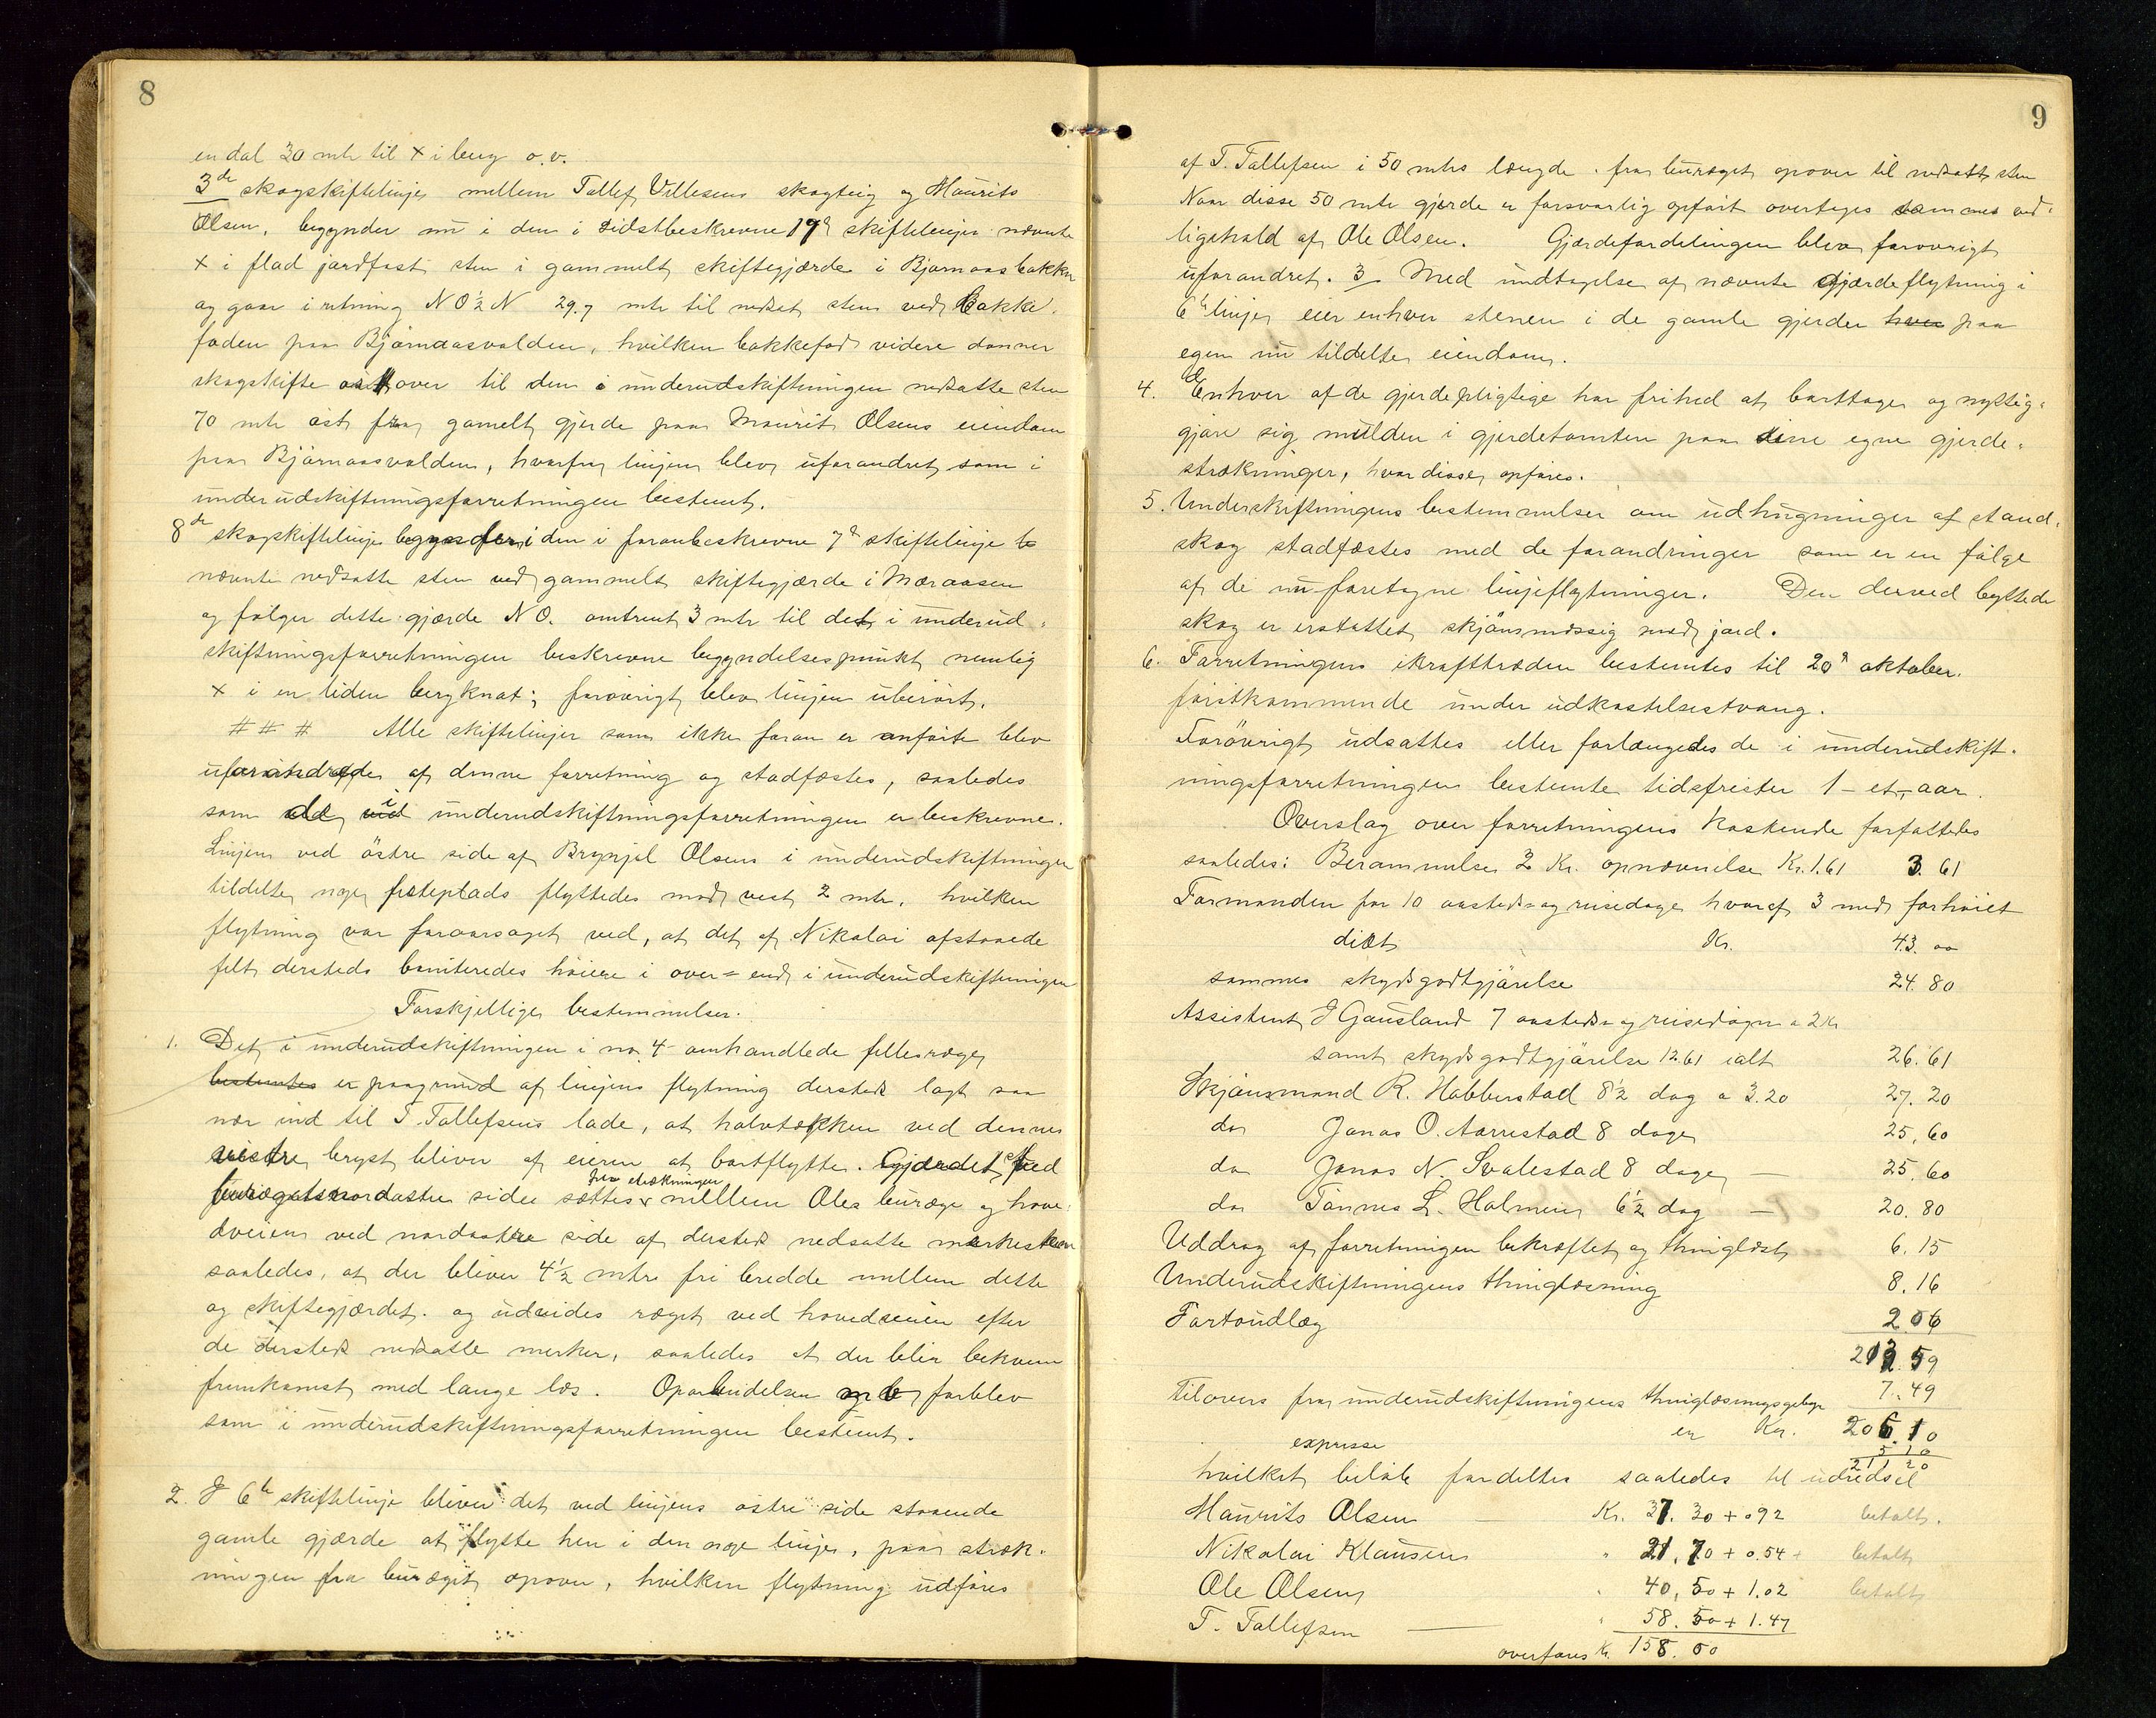 8
en dal 30 mtr til x i berg o.v.
3de skogskiftelinje mellem Tallef Villesens skogteig og Maurits
Olsen, begynder nu i den i sidstbeskrevne skiftelinje nævnte
x i flad jordfast sten i gammelt skiftegjærde i Bjørnaasbakken
og gaar i retning NO½N 29.7 mtr til nedsat sten ved bakke-
foden paa Bjørnaasvolden, hvilken bakkefod videre danner
skogskifte over til den i underudskiftningen nedsatte sten
70 mtr øst fra gamelt gjerde paa Maurits Olsens eiendom
paa Bjørnaasvolden, hvorfra linjen blev uforandret som i
underudskiftningsforretningen bestemt.
8de skogskiftelinje begynder i den i foranbeskrevne 7de skiftelinje
nævnte nedsatte sten ved gammelt skiftegjærde i Mæraasen
og følger dette gjærde NO. omtrent 3 mtr til det i underud-
skiftningsforretningen beskrevne begyndelsespunkt nemlig
x i en liden bergknat; forøvrigt blev linjen uberørt.
# # # Alle skiftelinjer som ikke foran er anført blev
uforandrede af denne forretning og stadfæstes, saaledes
som de i underudskiftningsforretningen er beskrevne.
Linjen ved östre side af Brynjel Olsens i underudskiftningen
tildelte nye fæteplads flyttedes mod vest 2 mtr. hvilken
flytning var foraarsaget ved, at det af Nikolai afstaaede
felt dersteds boniteredes høiere i over= end i underudskiftningen
Forskjellige bestemmelser.
1. Det i underudskiftningen i no. 4 omhandlede fellesræge
bestemtes er paagrund af linjens flytning dersteds lagt saa
nær ind til T. Tallefsens lade, at halvtækken ved dennes
vestre bryst bliver af eieren at bortflytte. Gjærdet ved
burægets nordøstre side sættes fra strækningen mellem Oles buræge og hove-
dveien ved nordøstre side af dersteds nedsatte merkesten
saaledes, at der bliver 4½ mtrs fri bredde mellem dette
og skiftegjærdet. og udvides ræget ved hovedveien efter
de dersteds nedsatte merker, saaledes at der blir bekvem
fremkomst med lange læs. Oparbeidelsen forblev
som i underudskiftningsforretningen bestemt.
2. I 6te skiftelinje bliver det ved linjens østre side staaende
gamle gjærde at flytte hen i den nye linje, paa stræk-
ningen fra buræget opover, hvilken flytning udføres
9
af T. Tallefsen i 50 mtrs længde fra buræget opover til nedsatt sten
Naar disse 50 mtr gjerde er forsvarlig opført overtages sammes ved-
ligehold af Ole Olsen. Gjærdefordelingen blev forøvrigt
uforandret. 3 Med undtagelse af nævnte gjærdeflytning i
6te linje eier enhver stenen i de gamle gjerder hver paa
egen nu tildelte eiendom.
4. Enhver af de gjerdepligtige har frihed at borttage og nyttig-
gjøre sig mulden i gjerdetomten paa sine egne gjerde-
strækninger, hvor disse opføres.
5. Underskiftningens bestemmelser om udhugninger af stand-
skog stadfæstes med de forandringer som er en følge
af de nu foretagne linjeflytninger. Den derved byttede
skog er erstattet skjønsmæssig med jord.
6. Forretningens ikrafttræden bestemtes til 20de oktober
førstkommende under udkastelsestvang.
Forøvrigt udsattes eller forlængedes de i underudskift-
ningsforretningen bestemte tidsfrister 1 - et - aar.
Overslag over forretningens kostende forfattedes
saaledes: Berammelse 2 Kr. opnævnelse Kr. 1.61 3.61
Formanden for 10 aasteds= og reisedage hvoraf 3 med forhøiet
diæt Kr. 43.00
sammes skydsgodtgjørelse 24.80
Assistent J Gausland 7 aasteds= og reisedage a 2 Kr
samt skydsgodtgjørelse 12.61 ialt 26.61
Skjønsmand R. Hobberstad 8½ dag a 3.20 27.20
do Jonas O. Aarrestad 8 dage 25.60
do Jonas N. Svalestad 8 dage — 25.60
do Tønnes L. Holmen 6½ dag — 20.80
Uddrag af forretningen bekræftet og thinglæst 6.15
Underudskiftningens thinglæsning 8.16
Portoudlæg 2.06
213.59
Tilovers fra underudskiftningens thinglæsningsgebyr 7.49
er Kr. 206.10
expresse 5 10
211 20
hvilket beløb fordeltes saaledes til udredsel
Maurits Olsen — Kr. 37.30 + 092 betalt.
Nikolai Klausen " 21.70 + 0.54 betalt
Ole Olsen " 40,50 + 1.02 betalt
T. Tallefsen — " 58.50 + 1.47
overføres Kr. 158.00